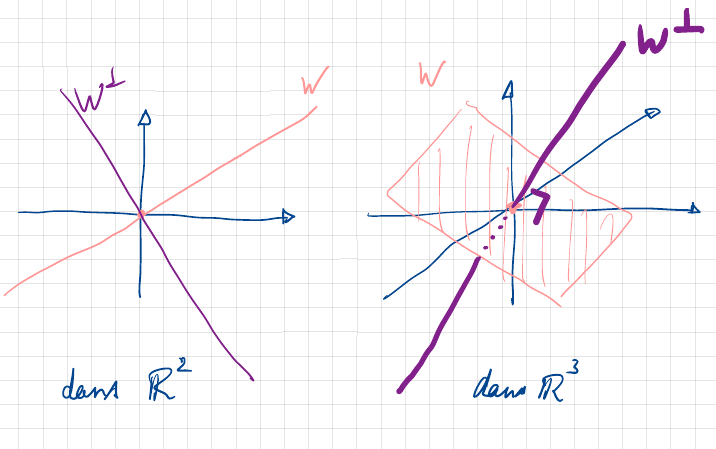 W^⊥
W
dans ℝ²
W
W^⊥
dans ℝ³